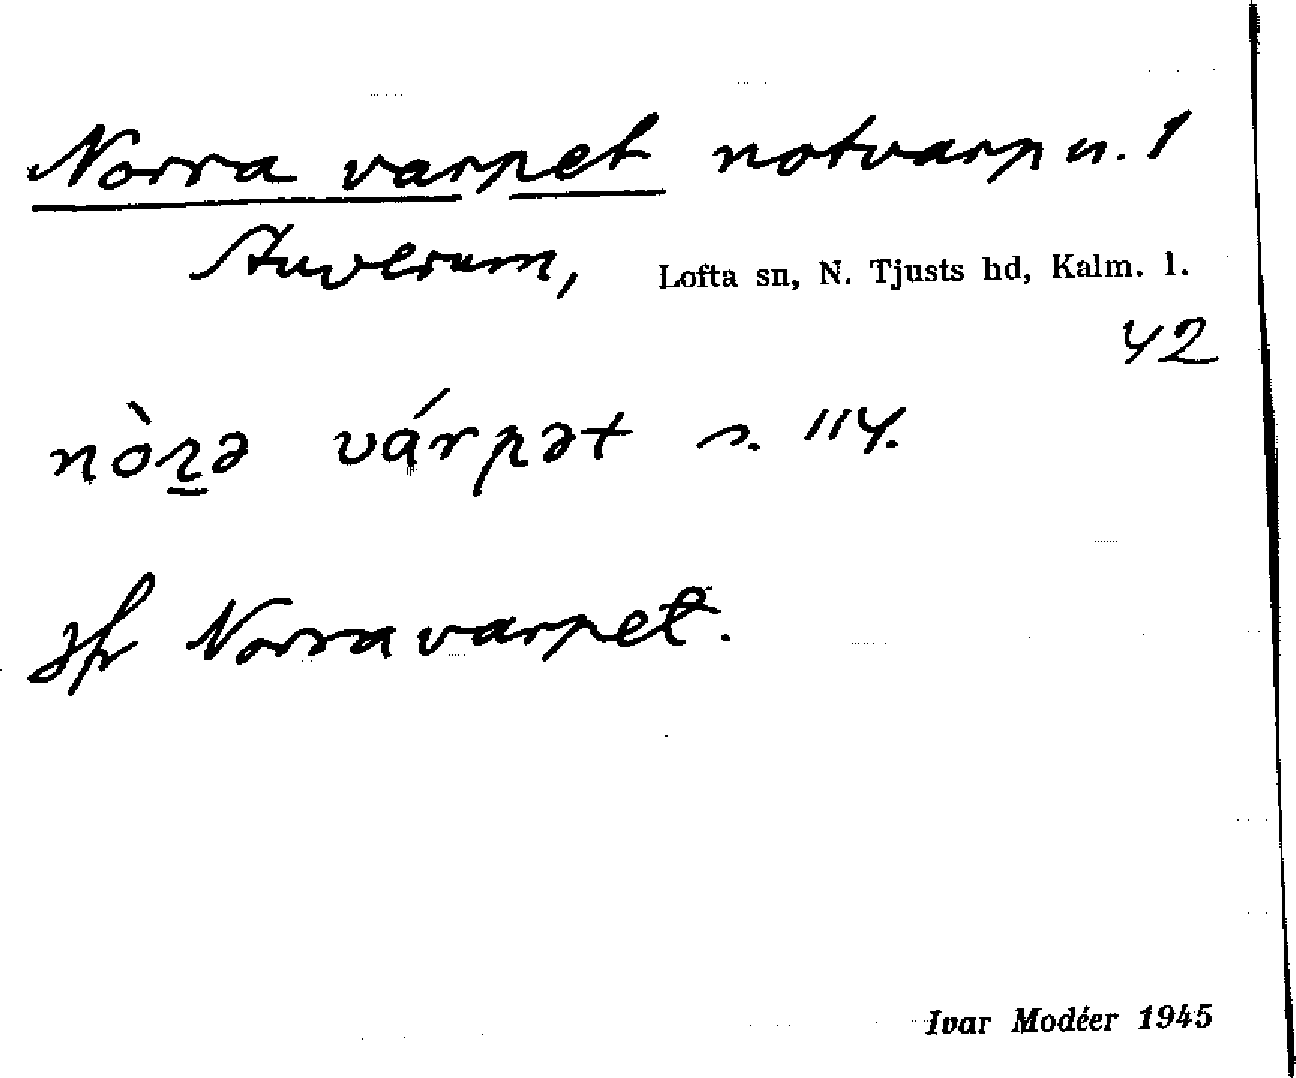 Norra varpet notvarp n. 1
Stuverum, Lofta sn, N. Tjusts hd, Kalm. l.
42
nòr̲ə várpət s. 114.
Jfr Norravarpet.
Ivar Modéer 1945